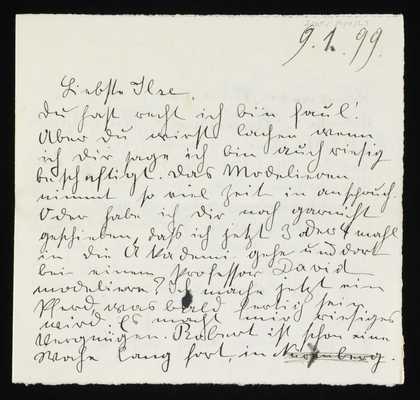 9.1.99.
Liebste Ilse.
du hast recht ich bin faul!
Aber du wirst lachen wenn
ich dir sage ich bin auch riesig
beschäftigt. Das Modelieren
nimmt so viel Zeit in anspruch.
Oder habe ich dir noch garnicht
geschieben, daß ich jetzt 3 mahl
in die Akademi gehe und dort
bei einem Professor David
modeliere? Ich mache jetzt ein
Pferd, was bald fertig sein
wird. Es macht mir riesiges
Vergnügen. Robert ist schon eine
Woche lang fort, in Nürnberg.